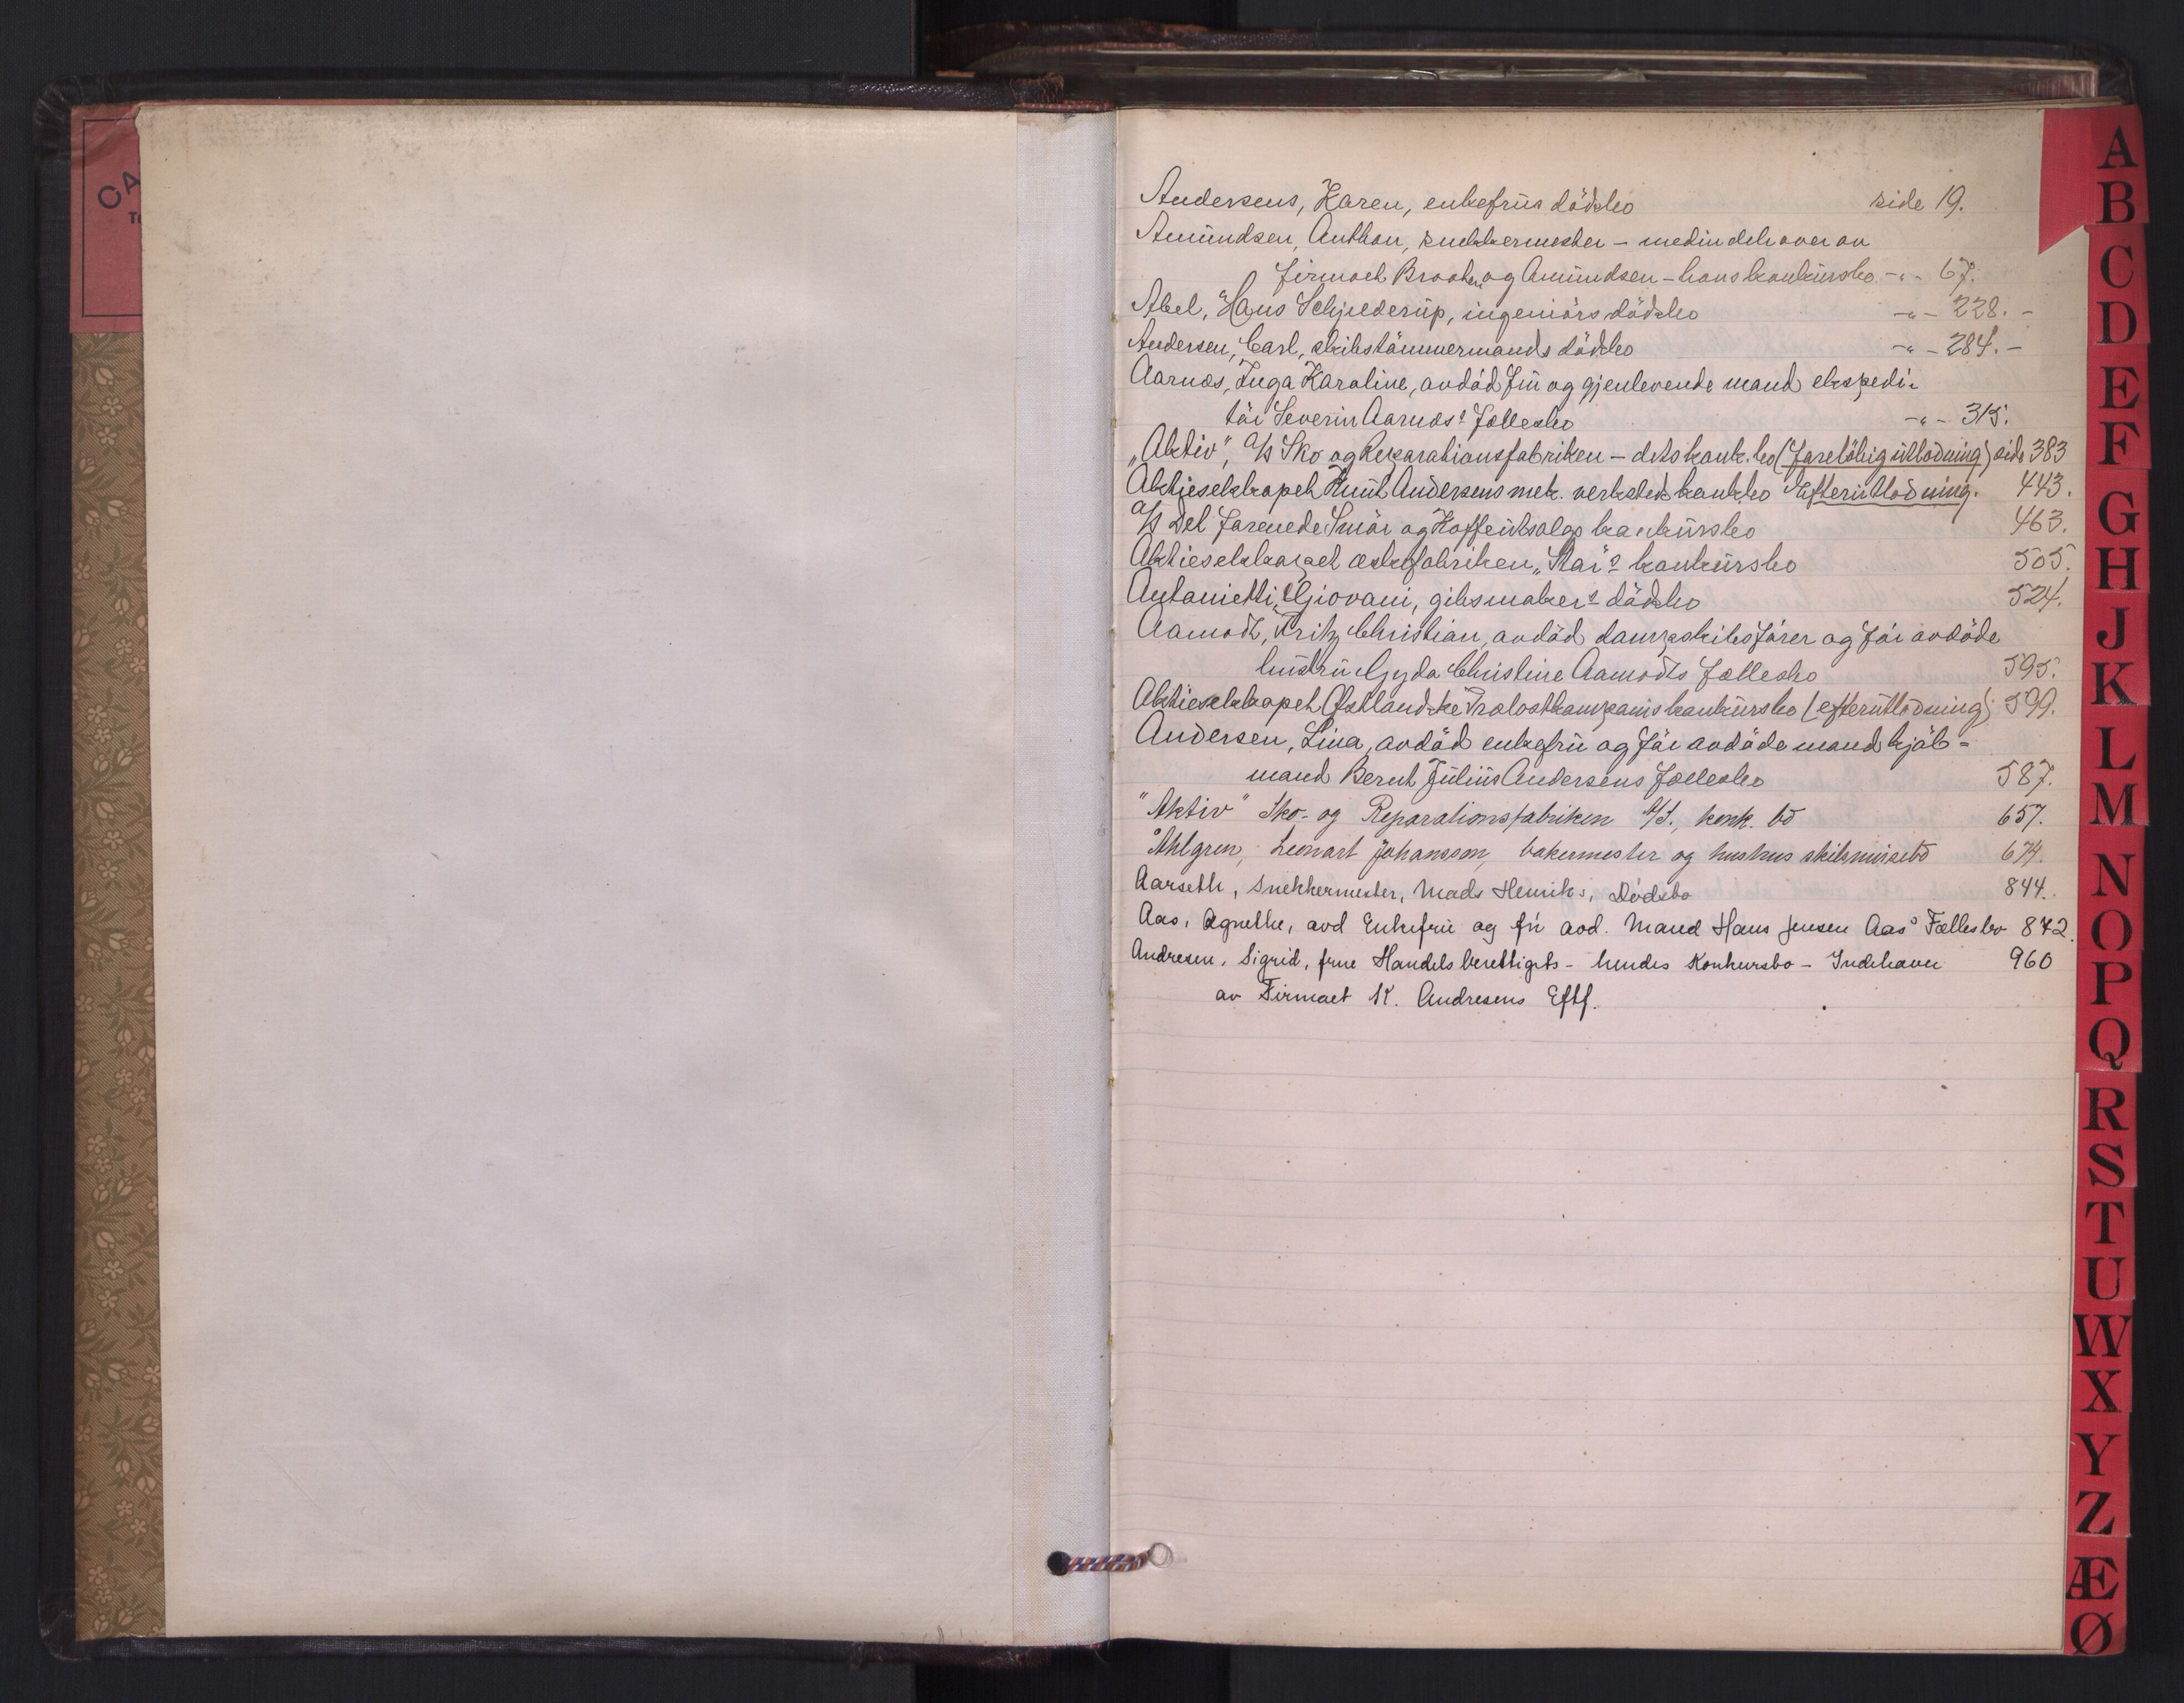 Andersens, Karen, enkefrus dödsbo side 19.
Amundsen, Anthon, snekkermester - medindehaver av
firmaet Braaten og Amundsen - hans konkursbo -"- 67.
Abel, Hans Schjelderup, ingeniörs dödsbo -"- 228. -
Andersen, Carl, skibstömmermands dödsbo -"- 284. -
Aarnæs, Inga Karoline, avdöd fru og gjenlevende mand ekspedi-
tör Severin Aarnæs' Fællesbo -"- 315.
"Aktiv", A/S Sko og Reparationsfabriken - dets konk.bo (foreløbig utlodning) side 383
Aktieselskapet Knut Andersens mek. verksteds konkbo Efterutlodning. 443.
A/S Det forenede Smör og Kaffeutsalgs konkursbo 463.
Aktieselskapet æskefabriken "Star"s konkursbo 505.
Antonietti, Giovani, gibsmakers dödsbo 524.
Aamodt, Fritz Christian, avdöd dampskibsförer og för avdöde
hustru Gyda Christine Aamodts Fællesbo 595.
Aktieselskapet Østlandske Trælastkompanis konkursbo (efterutlodning) 599.
Andersen, Lina, avdöd enkefru og för avdöde mand kjöb-
mand Bernt Julius Andersens Fællesbo 587.
"Aktiv" Sko- og Reparationsfabriken A/S., konk. bo 657.
Ahlgren, Leonart Johansson, bakermester og hustrus skilsmissebo 674.
Aarseth, Snekkermester, Mads Henriks, Dødsbo 844.
Aas, Agnethe, avd Enkefru og før avd. Mand Hans Jensen Aas' Fællesbo 872.
Andresen, Sigrid, frue Handelsberettigets - hendes Konkursbo - Indehaver 960
av Firmaet K. Andresens Eftf.
CA
T
A
B
C
D
E
F
G
H
J
K
L
M
N
O
P
Q
R
S
T
U
W
X
Y
Z
Æ
Ø